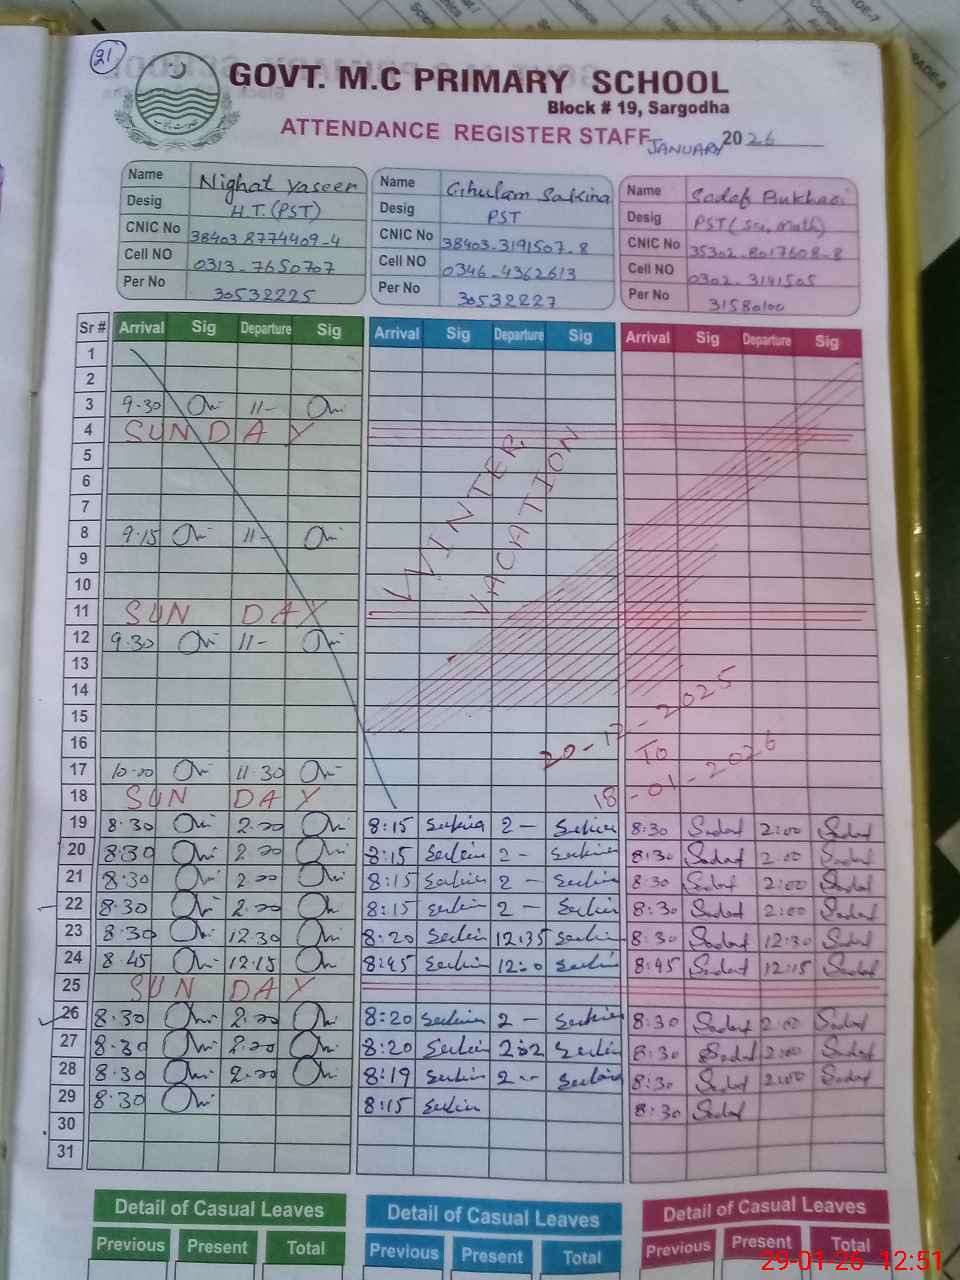 21
GOVT. M.C PRIMARY SCHOOL
Block # 19, Sargodha
ATTENDANCE REGISTER STAFF JANUARY 2026
Name Nighat Yaseen
Desig H.T.(PST)
CNIC No 38403-8774409-4
Cell NO 0313-7650707
Per No 30532225
Name Ghulam Sakina
Desig PST
CNIC No 38403-3191507-8
Cell NO 0346-4362613
Per No 30532227
Name Sadaf Bukhari
Desig PST (Sci, Math)
CNIC No 35302-8017608-8
Cell NO 0302-3191505
Per No 31580100
Sr # Arrival Sig Departure Sig Arrival Sig Departure Sig Arrival Sig Departure Sig
1
2
3 9-30 11-
4 SUNDAY
5
6
7
8 9-15 11-
9
10
11 SUNDAY
12 9-30 11-
13
14
15
16
17 10-00 11-30
18 SUNDAY
WINTER
VACATION
20-12-2025
TO
18-01-2026
19 8-30 2-00 8:15 Sakina 2- Sakina 8:30 Sadaf 2:00 Sadaf
20 8-30 2-00 8:15 Sakina 2- Sakina 8:30 Sadaf 2:00 Sadaf
21 8-30 2-00 8:15 Sakina 2- Sakina 8:30 Sadaf 2:00 Sadaf
22 8-30 2-00 8:15 Sakina 2- Sakina 8:30 Sadaf 2:00 Sadaf
23 8-30 12-30 8:20 Sakina 12:35 Sakina 8:30 Sadaf 12:30 Sadaf
24 8-45 12-15 8:45 Sakina Sakina 8:45 Sadaf 12:15 Sadaf
25 SUNDAY
26 8-30 2-00 8:20 Sakina 2- Sakina 8:30 Sadaf 2:00 Sadaf
27 8-30 2-00 8:20 Sakina 2:02 Sakina 8:30 Sadaf 2:00 Sadaf
28 8-30 2-00 8:19 Sakina 2-- Sakina 8:30 Sadaf 2:00 Sadaf
29 8-30 8:15 Sakina 8:30 Sadaf
30
31
Detail of Casual Leaves Detail of Casual Leaves Detail of Casual Leaves
Previous Present Total Previous Present Total Previous Present Total
29-01-26 12:51